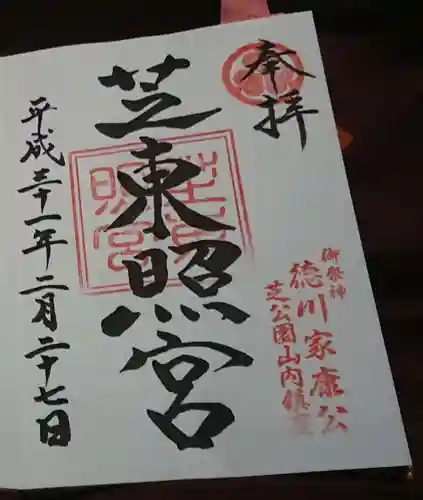 奉拝
御祭神
徳川家康公
芝公園山内鎮座
芝東照宮
平成三十一年二月二十七日